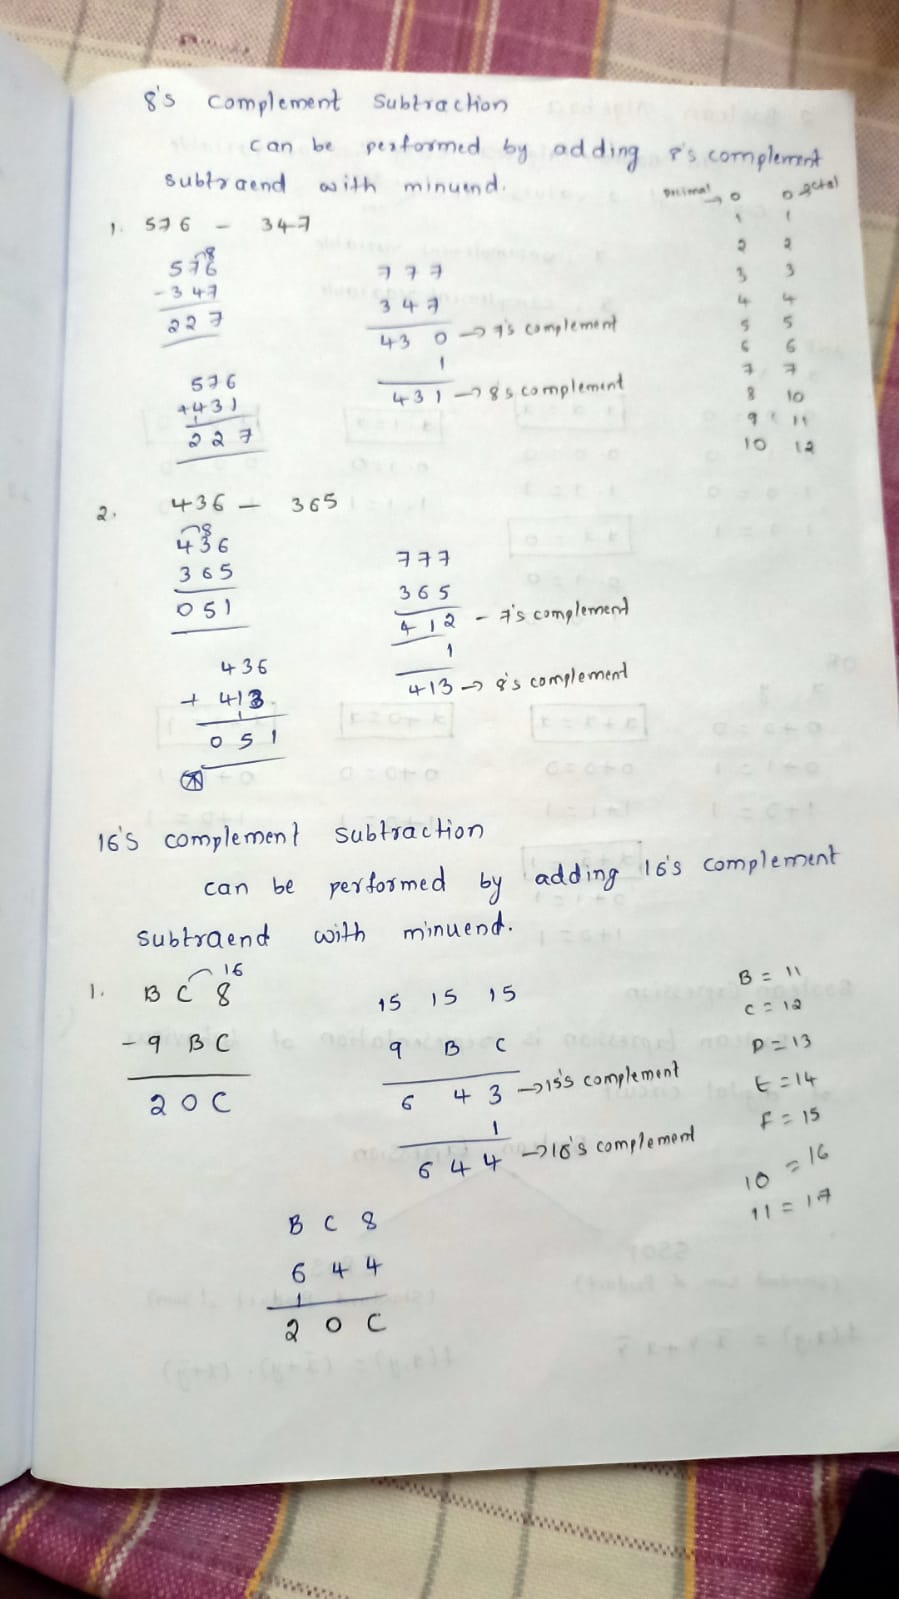 8's complement subtraction
can be performed by adding 8's complement
subtraend with minuend.
Decimal → 0 0 octal
1 1
2 2
3 3
4 4
5 5
6 6
7 7
8 10
9 11
10 12
1. 576 - 347
8
576
- 347
227
777
347
430 → 7's complement
1
431 → 8's complement
576
+431
1
227
2. 436 - 365
8
436
365
051
777
365
412 - 7's complement
1
413 → 8's complement
436
+ 413
1
051
16's complement subtraction
can be performed by adding 16's complement
subtraend with minuend.
16
1. B C 8
- 9 B C
2 0 C
15 15 15
9 B C
6 4 3 → 15's complement
1
6 4 4 → 16's complement
B = 11
C = 12
D = 13
E = 14
F = 15
10 = 16
11 = 17
B C 8
6 4 4
1
2 0 C